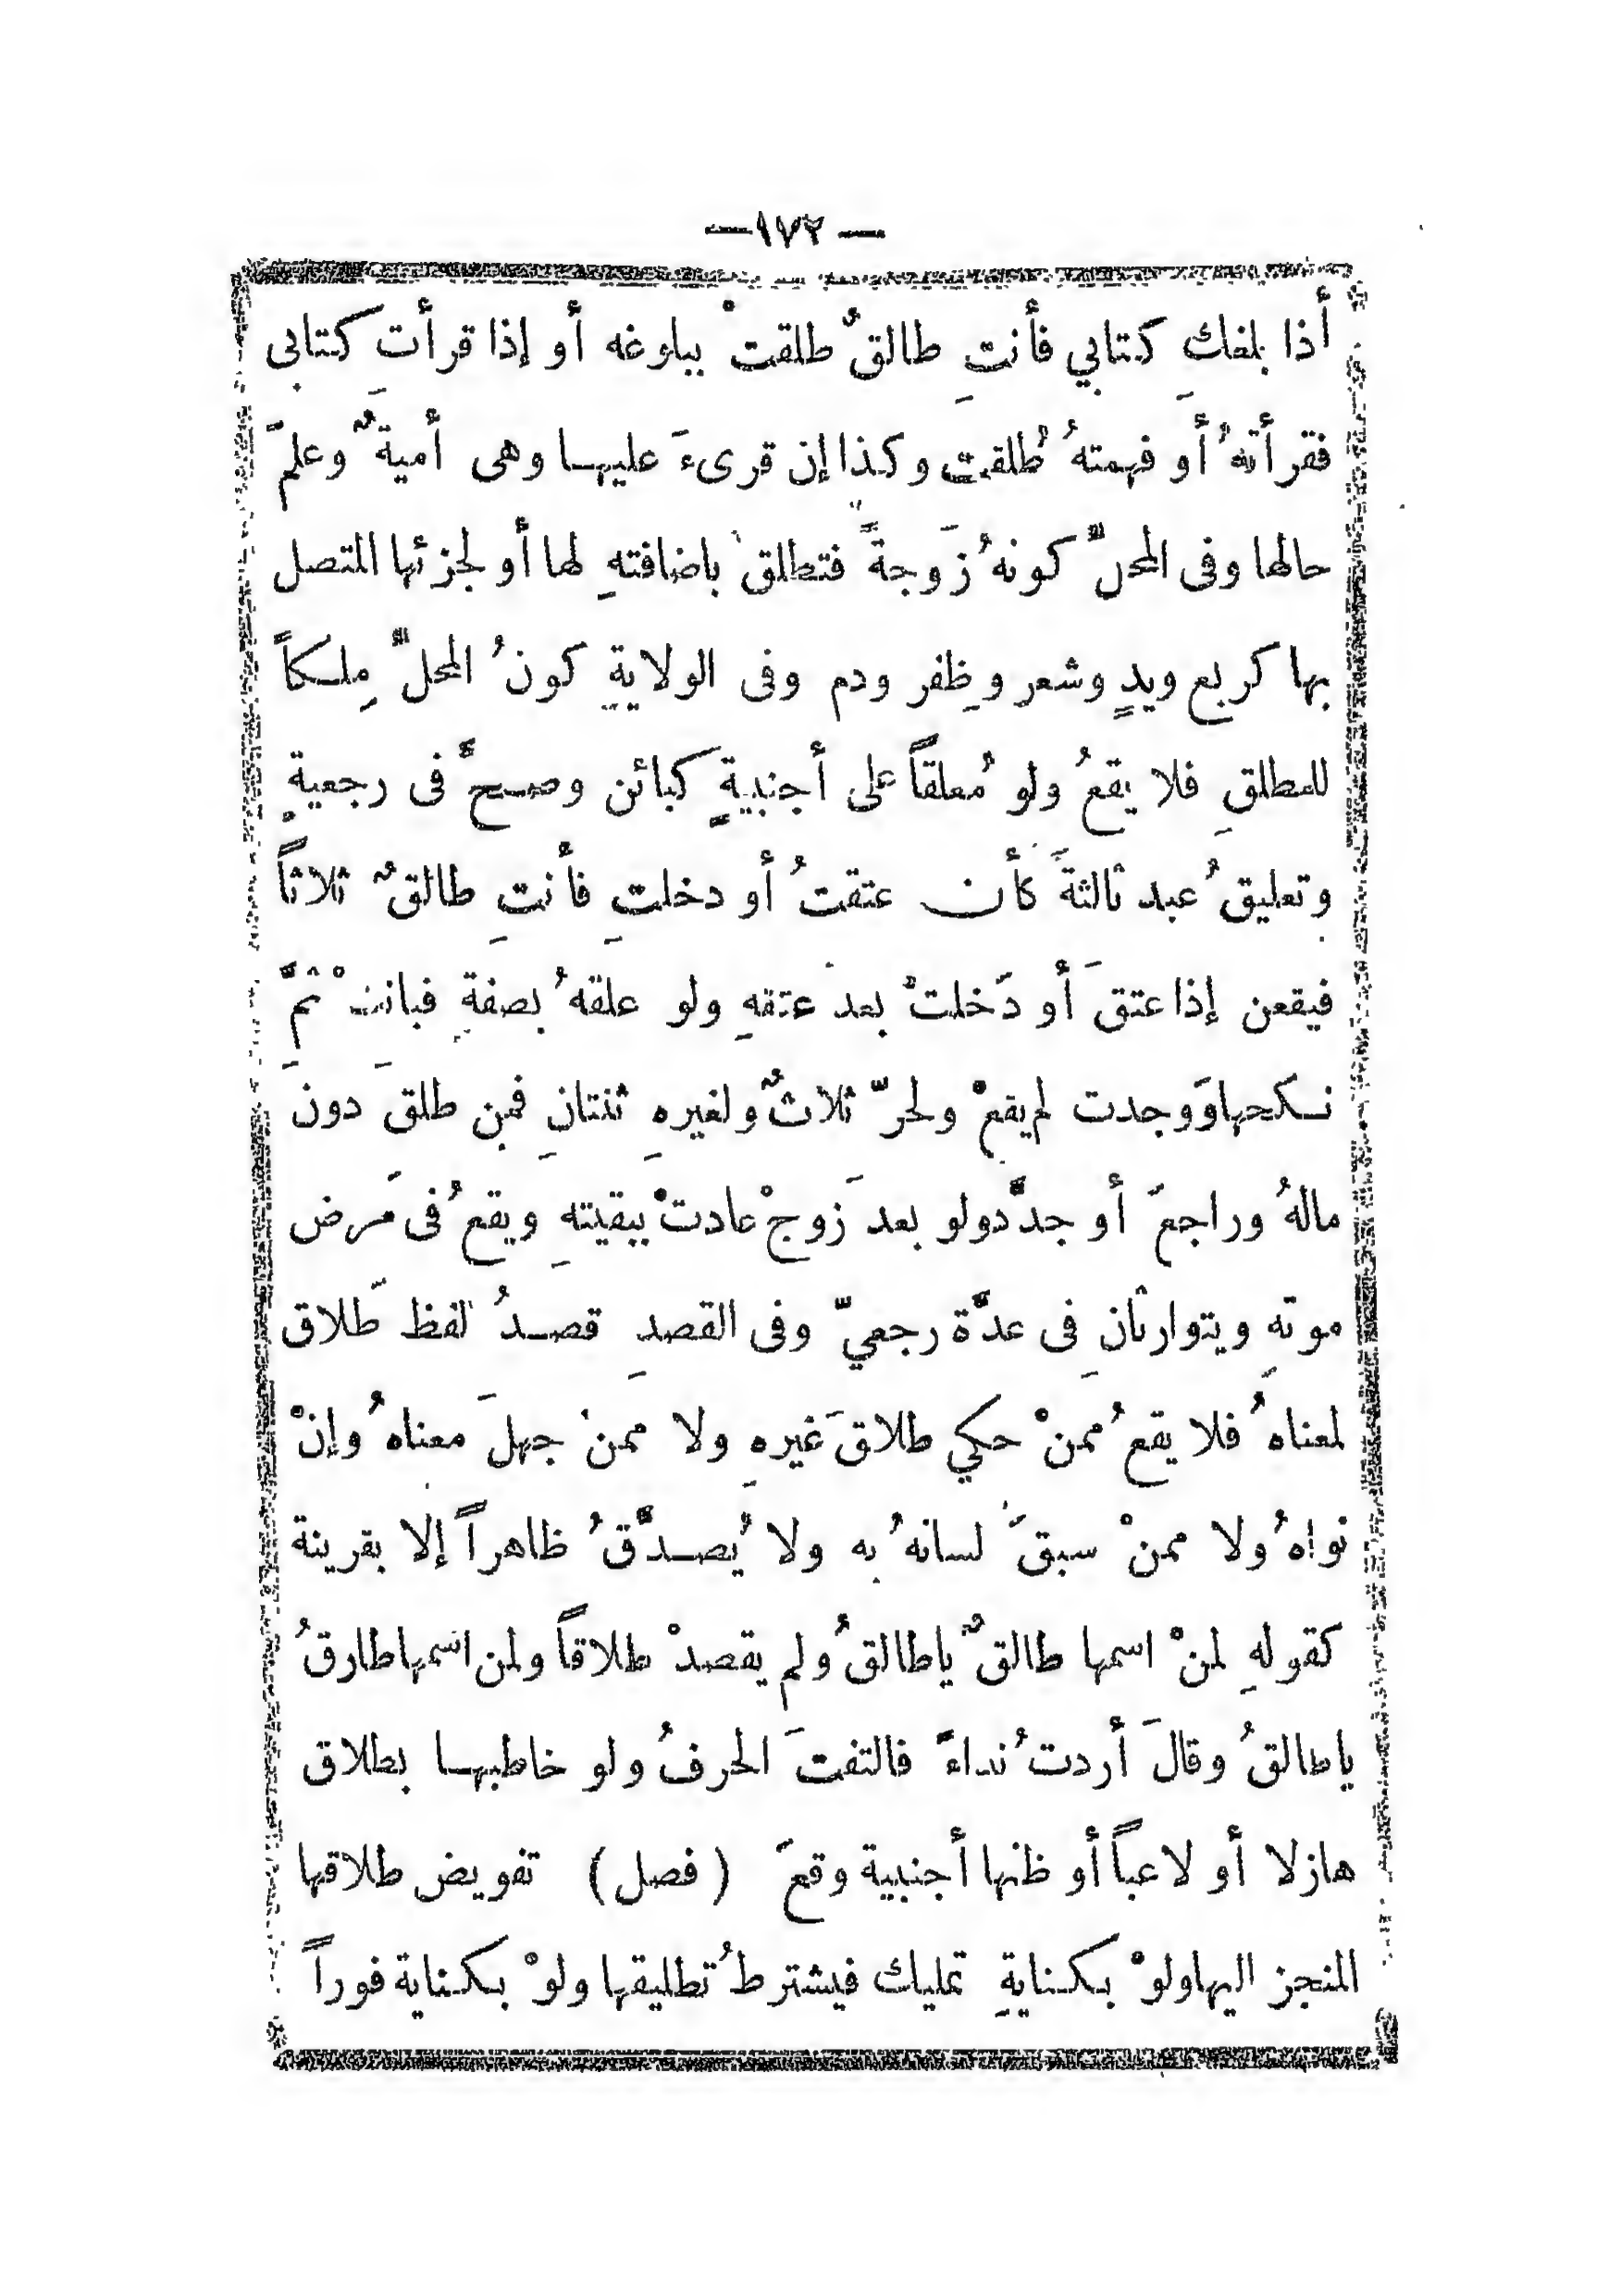 — ١٧٢ —
أذا بلغكِ كتابي فأنتِ طالقٌ طلقتْ ببلوغه أو إذا قرأتِ كتابى
فقرأتهُ أو فهمتهُ طُلقت وكذا إن قرىءَ عليها وهى أميةٌ وعلمَ
حالها وفى المحلِّ كونهُ زَوجةً فتطلق باضافتهِ لها أو لجزئها المتصل
بها كربع ويدٍ وشعرٍ وظِفر ودم وفى الولايةِ كونُ المحلِّ مِلكاً
للمطلقِ فلا يقعُ ولو مُعلقاً على أجنبيةٍ كبائن وصحَّ فى رجعيةٍ
وتعليقُ عبد ثالثةً كأن عتقتُ أو دخلتِ فأنتِ طالقٌ ثلاثاً
فيقعن إذا عتقَ أو دَخلتْ بعد عتقهِ ولو علقهُ بصفةٍ فبانتْ ثمَّ
نكحها وَوجدت لم يقعْ ولحرّ ثلاثٌ ولغيرهِ ثنتانِ فمن طلقَ دونَ
مالهُ وراجعَ أو جدَّد ولو بعدَ زوجْ عادتْ ببقيتهِ ويقعُ فى مَرض
موتهِ ويتوارثانِ فى عدَّة رجعيّ وفى القصدِ قصدُ لفظ طَلاق
لمعناهُ فلا يقعُ ممنْ حكي طلاقَ غيرهِ ولا ممنْ جهلَ معناهُ وإنْ
نواهُ ولا ممنْ سبقَ لسانهُ به ولا يُصدَّقُ ظاهراً إلا بقرينة
كقولهِ لمنْ اسمها طالقٌ ياطالقُ ولم يقصدْ طلاقاً ولمن اسمها طارقُ
ياطالقُ وقالَ أردتُ نداءً فالتفتَ الحرفُ ولو خاطبها بطلاق
هازلا أو لاعباً أو ظنها أجنبية وقعَ (فصل) تفويض طلاقها
المنجز اليها ولوْ بكنايةِ تمليك فيشترطُ تطليقها ولوْ بكناية فوراً